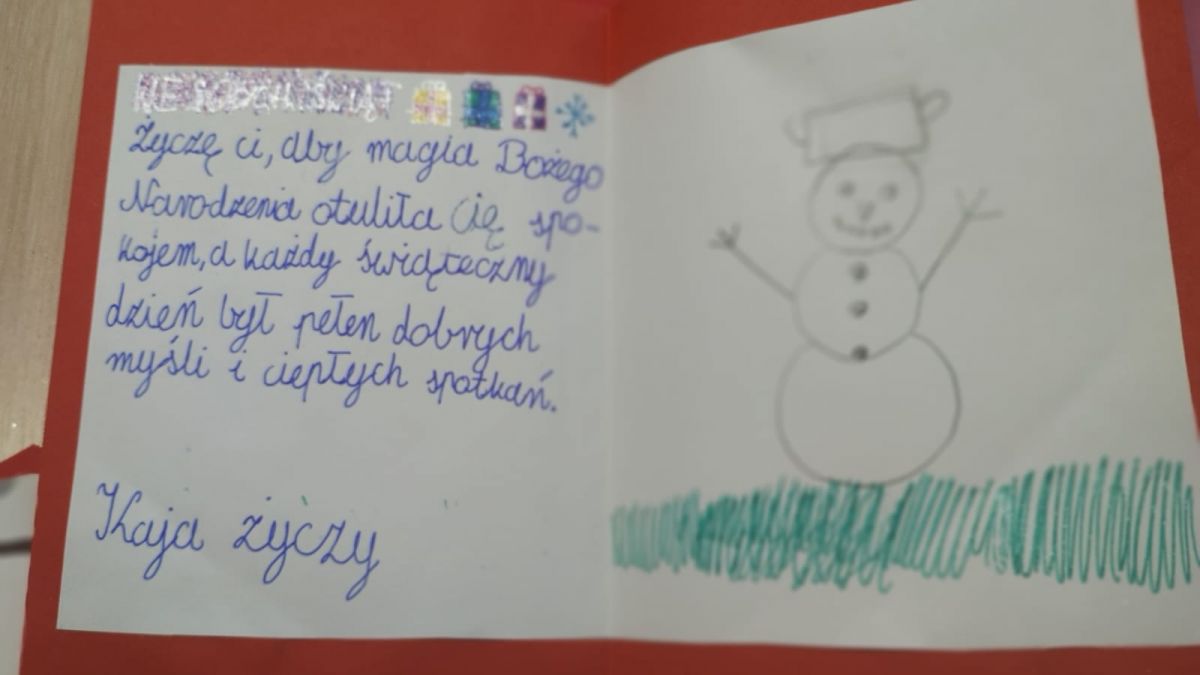 Życzę ci, aby magia Bożego
Narodzenia otuliła cię spo-
kojem, a każdy świąteczny
dzień był pełen dobrych
myśli i ciepłych spotkań.
Kaja życzy